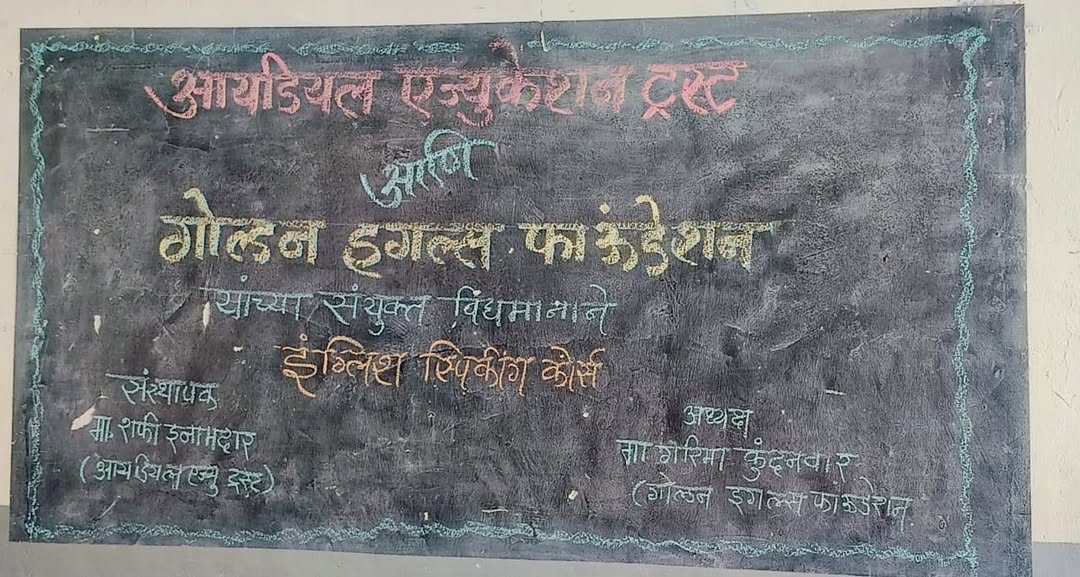 आयडियल एज्युकेशन ट्रस्ट
आणि
गोल्डन इगल्स फाऊंडेशन
यांच्या संयुक्त विद्यमानाने
इंग्लिश स्पिकींग कोर्स
संस्थापक
मा. शफी इनामदार
(आयडियल एज्यु ट्रस्ट)
अध्यक्ष
मा गरिमा कुंदनवार
(गोल्डन इगल्स फाऊंडेशन